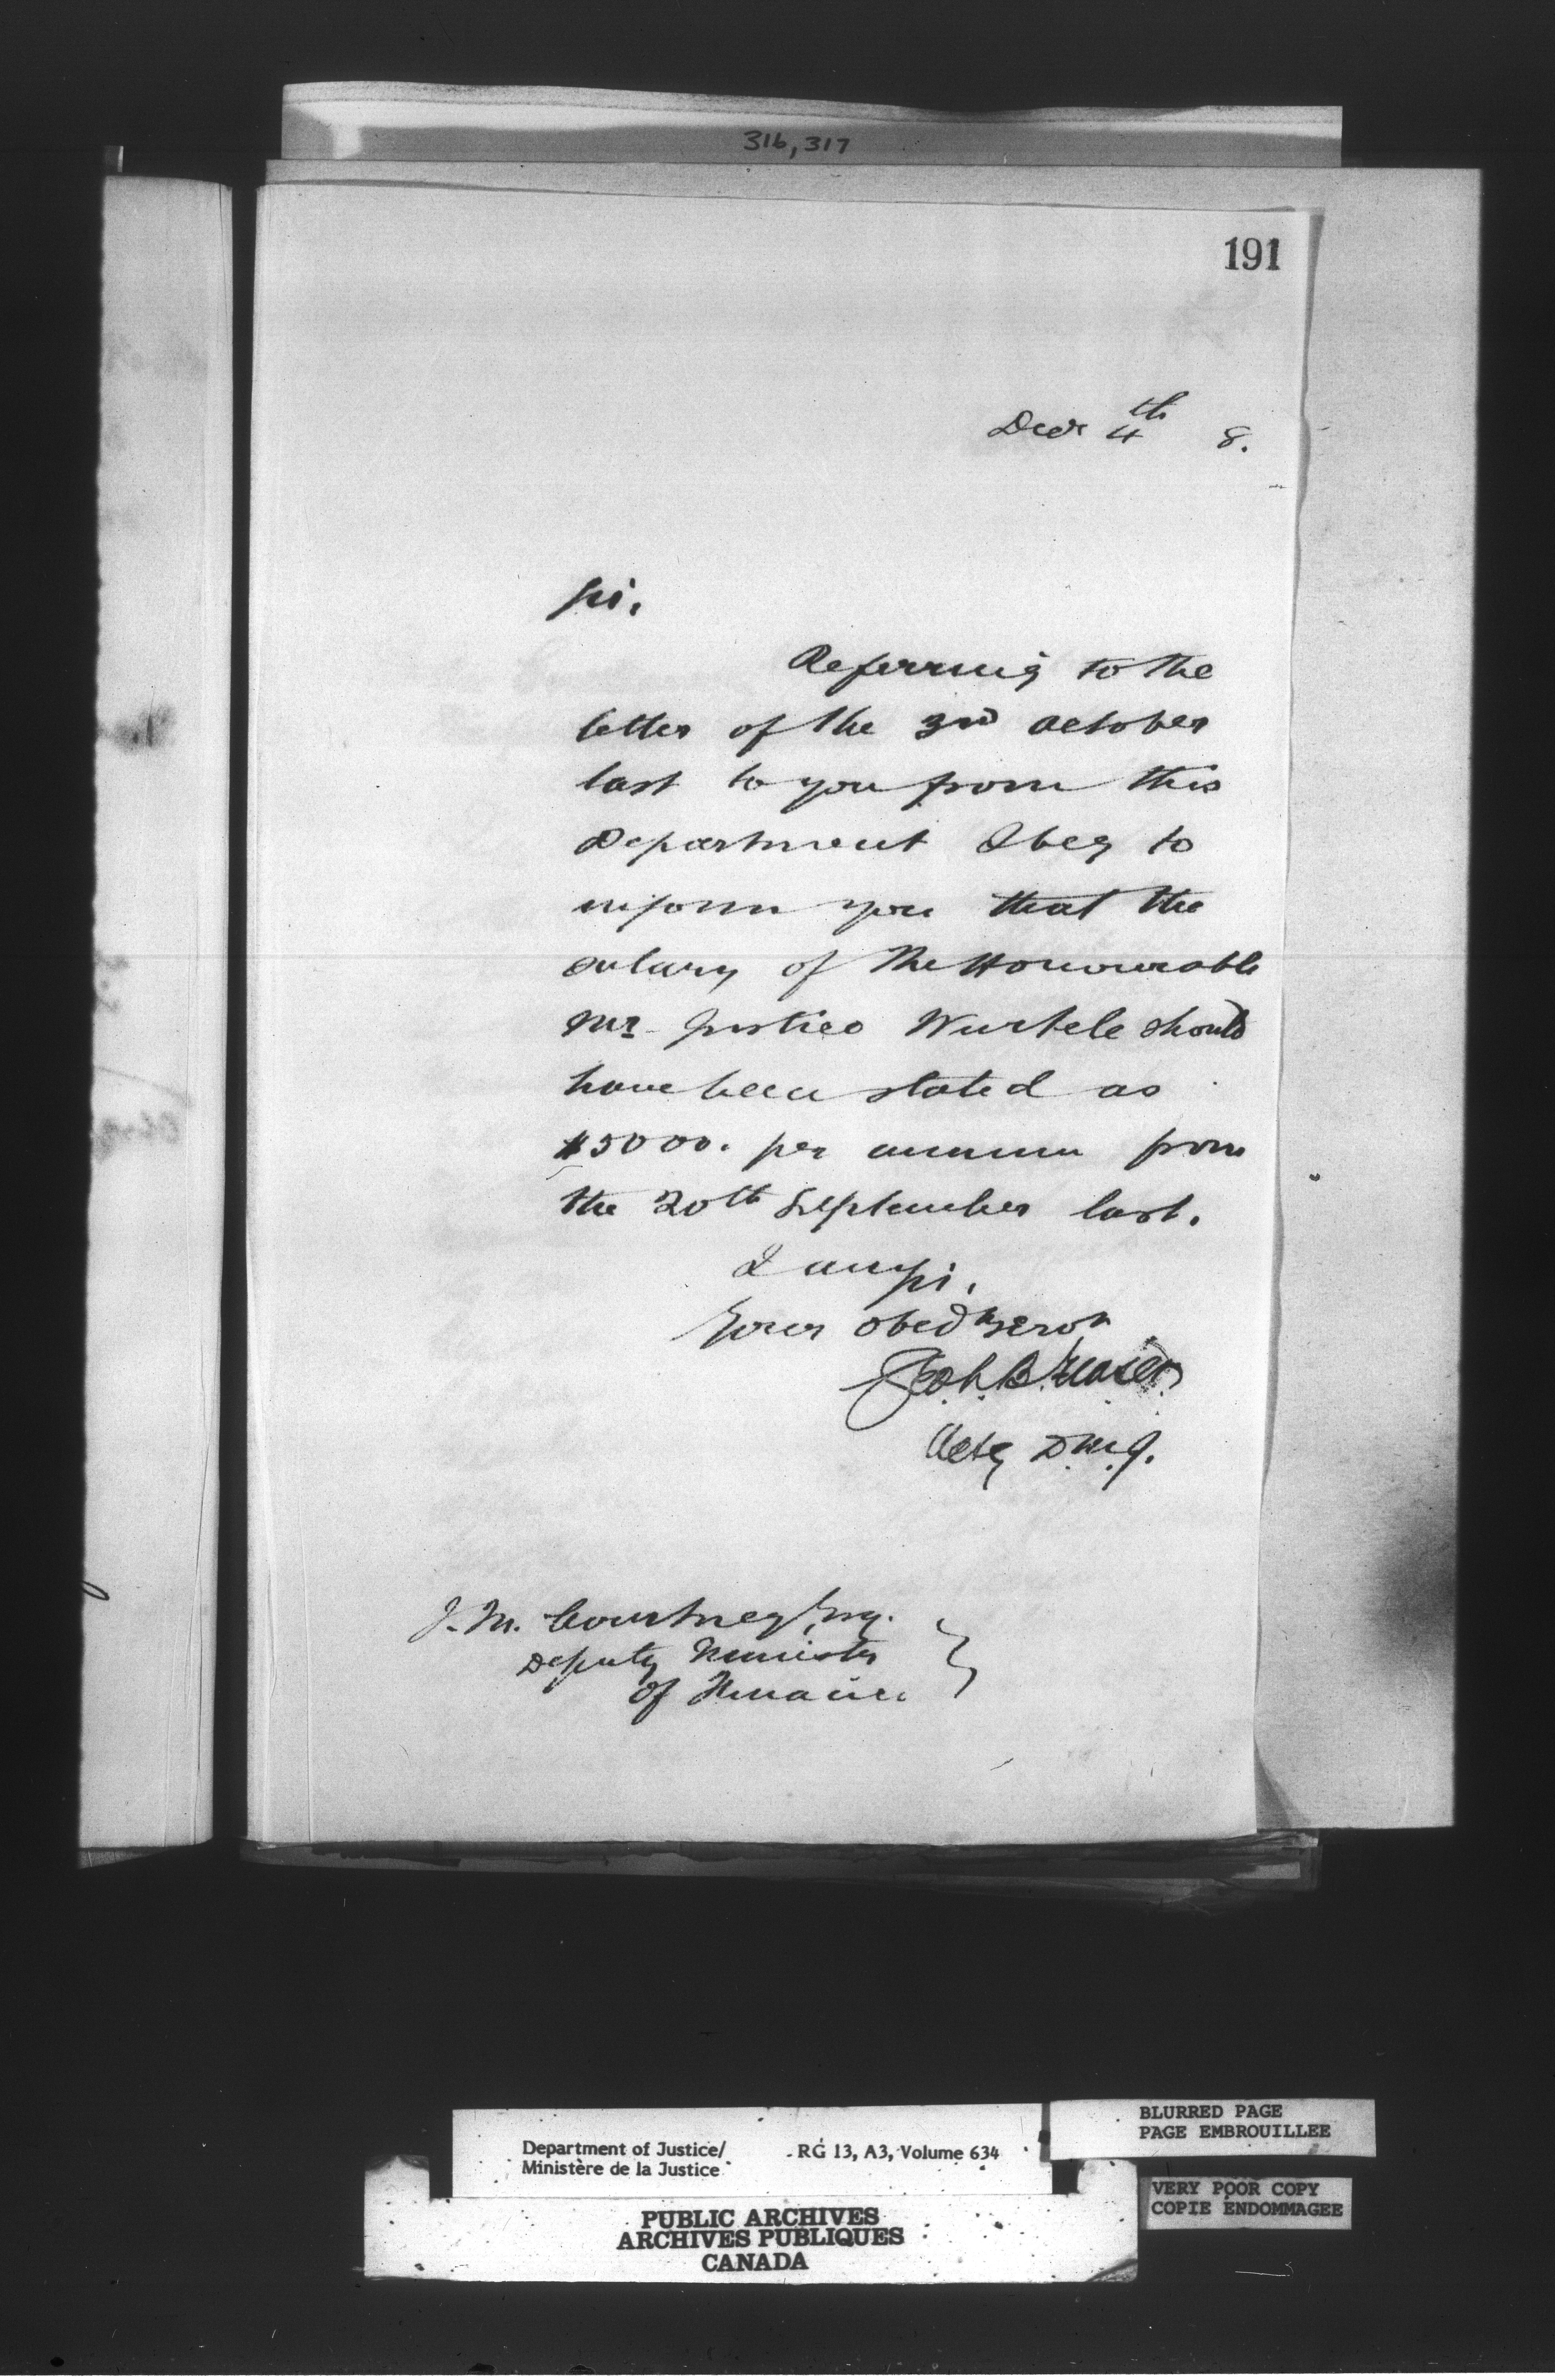 316, 317
191
Decr 4th 8.
Sir,
Referring to the
letter of the 3rd October
last to you from this
Department I beg to
inform you that the
salary of The Honourable
Mr. Justice Wurtele should
have been stated as
$5000. per annum from
the 20th September last.
I am, Sir,
Your obedt servt
Acty D.M.J.
J. M. Courtney, Esq.
Deputy Minister
of Finance
Department of Justice/ RG 13, A3, Volume 634
Ministère de la Justice
BLURRED PAGE
PAGE EMBROUILLEE
VERY POOR COPY
COPIE ENDOMMAGEE
PUBLIC ARCHIVES
ARCHIVES PUBLIQUES
CANADA